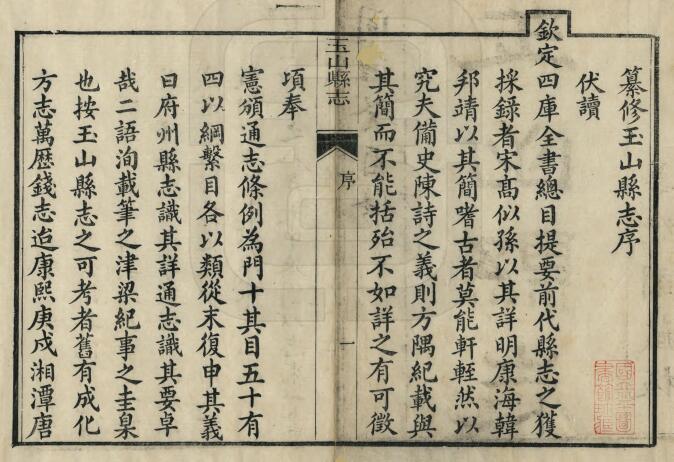 纂修玉山縣志序
伏讀
欽定四庫全書總目提要前代縣志之獲
採録者宋髙似孫以其詳明康海韓
邦靖以其簡嗜古者莫能軒輊然以
究夫備史陳詩之義則方隅紀載與
其簡而不能括殆不如詳之有可徵
玉山縣志
序
一
項奉
憲頒通志條例為門十其目五十有
四以綱繫目各以類從末復申其義
曰府州縣志識其詳通志識其要卓
哉二語洵載筆之津梁紀事之圭臬
也按玉山縣志之可考者舊有成化
方志萬歷錢志迨康熙庚戍湘潭唐